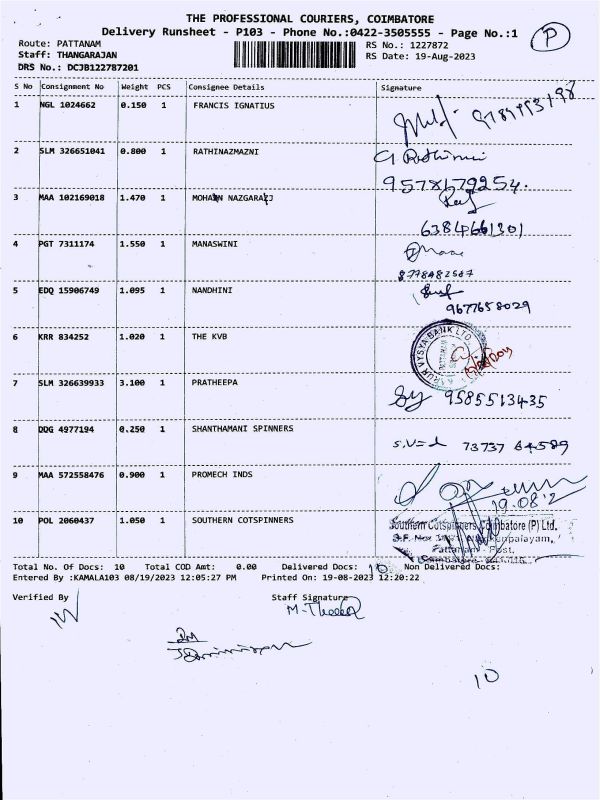 THE PROFESSIONAL COURIERS, COIMBATORE
Delivery Runsheet - P103 - Phone No.:0422-3505555 - Page No.:1
P
Route: PATTANAM
RS No.: 1227872
Staff: THANGARAJAN
RS Date: 19-Aug-2023
DRS No.: DCJB122787201
S No Consignment No Weight PCS Consignee Details Signature
1 NGL 1024662 0.150 1 FRANCIS IGNATIUS
2 SLM 326651041 0.800 1 RATHINAZMAZNI
9578179254.
3 MAA 102169018 1.470 1
6384661301
4 PGT 7311174 1.550 1 MANASWINI
8778482567
5 EDQ 15906749 1.095 1 NANDHINI
9677658029
6 KRR 834252 1.020 1 THE KVB
KARUR VYSYA BANK LTD.
7 SLM 326639933 3.100 1 PRATHEEPA
9585513435
8 DDG 4977194 0.250 1 SHANTHAMANI SPINNERS
73737 64589
9 MAA 572558476 0.900 1 PROMECH INDS
19.08.2
10 POL 2060437 1.050 1 SOUTHERN COTSPINNERS
Southern Cotspinners Coimbatore (P) Ltd.
Pattanam Post,
Total No. Of Docs: 10 Total COD Amt: 0.00 Delivered Docs: 10 Non Delivered Docs:
Entered By :KAMALA103 08/19/2023 12:05:27 PM Printed On: 19-08-2023 12:20:22
Verified By Staff Signature
10